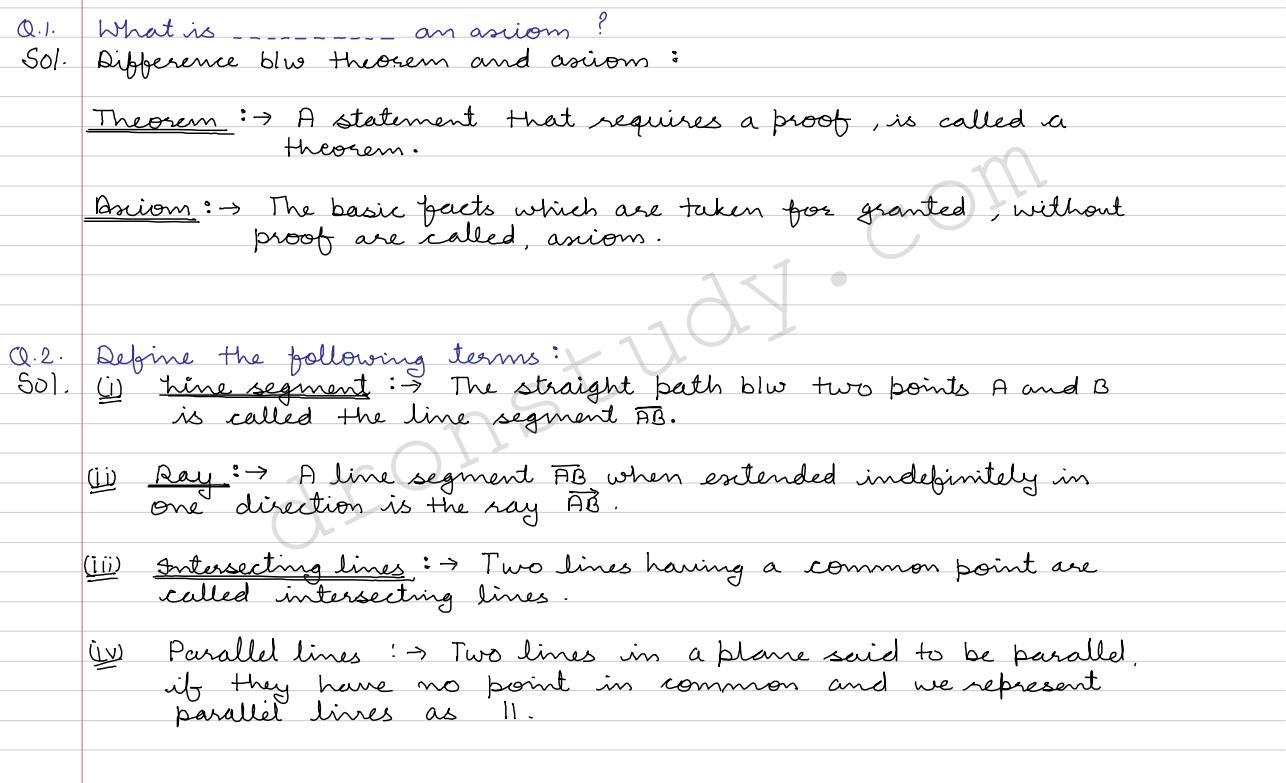 Q.1. What is __________ an axiom ?
Sol. Difference b/w theorem and axiom :
Theorem :→ A statement that requires a proof, is called a
theorem.
Axiom :→ The basic facts which are taken for granted, without
proof are called, axiom.
Q.2. Define the following terms :
Sol. (i) Line segment :→ The straight path b/w two points A and B
is called the line segment A̅B̅.
(ii) Ray :→ A line segment A̅B̅ when extended indefinitely in
one direction is the ray AB⃗.
(iii) Intersecting lines :→ Two lines having a common point are
called intersecting lines.
(iv) Parallel lines :→ Two lines in a plane said to be parallel,
if they have no point in common and we represent
parallel lines as ||.
dronstudy.com